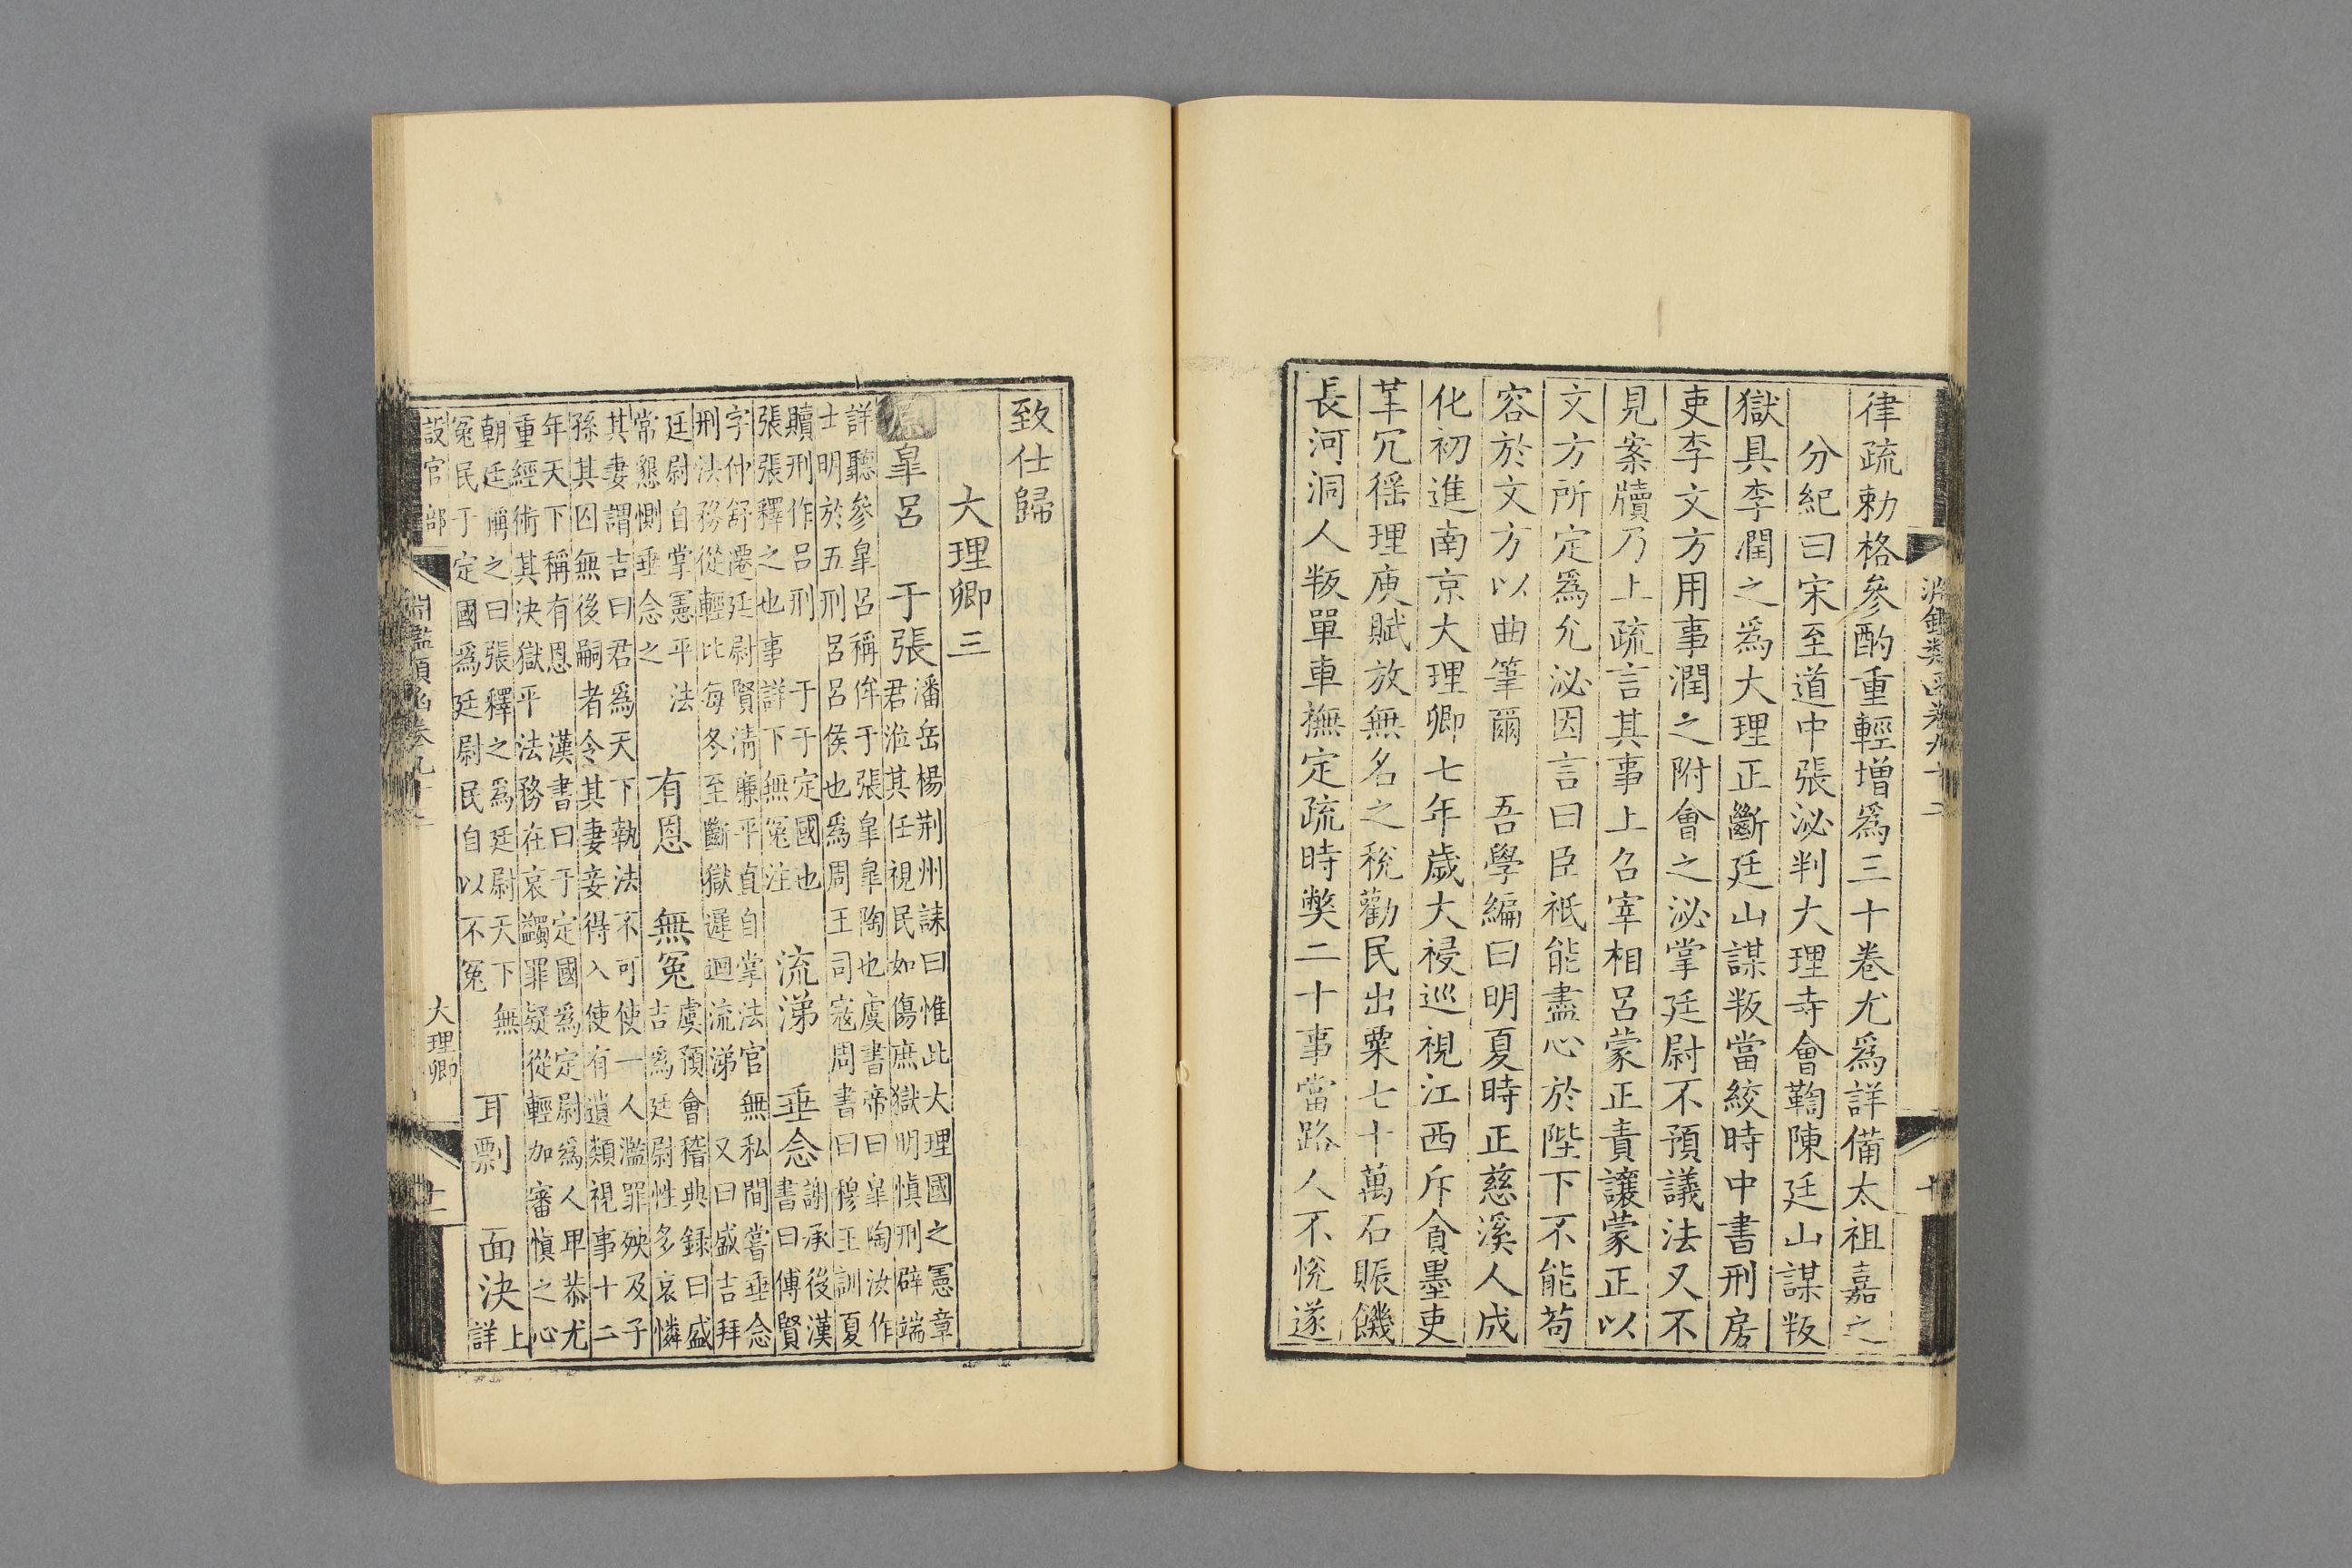 淵鑑類函卷九十二
律疏勅格參酌重輕增爲三十卷尤爲詳備太祖嘉之
分紀曰宋至道中張泌判大理寺會鞫陳廷山謀叛
獄具李潤之爲大理正斷廷山謀叛當絞時中書刑房
吏李文方用事潤之附會之泌掌廷尉不預議法又不
見案牘乃上疏言其事上召宰相呂蒙正責讓蒙正以
文方所定爲允泌因言曰臣祇能盡心於陛下不能苟
容於文方以曲筆爾 吾學編曰明夏時正慈溪人成
化初進南京大理卿七年歲大祲巡視江西斥貪墨吏
革冗徭理庾賦放無名之稅勸民出粟七十萬石賑饑
長河洞人叛單車撫定疏時弊二十事當路人不悅遂
致仕歸
大理卿三
原皐呂 于張
潘岳楊荆州誄曰惟此大理國之憲章
君涖其任視民如傷庶獄明慎刑辟端
詳聽參皐呂稱侔于張皐皐陶也虞書帝曰皐陶汝作
士明於五刑呂呂侯也爲周王司寇周書曰穆王訓夏
贖刑作呂刑 于于定國也
張張釋之也事詳下無冤注
流涕 垂念
謝承後漢
書曰傅賢
字仲舒遷廷尉賢清廉平直自掌法官無私間嘗垂念
刑法務從輕比每冬至斷獄遲迴流涕 又曰盛吉拜
廷尉自掌憲平法
常懇惻垂念之
有恩 無冤
虞預會稽典録曰盛
吉爲廷尉性多哀憐
其妻謂吉曰君爲天下執法不可使一人濫罪殃及子
孫其囚無後嗣者令其妻妾得入使有遺類視事十二
年天下稱有恩 漢書曰于定國爲定尉爲人卑恭尤
重經術其決獄平法務在哀蠲罪疑從輕加審慎之心
朝廷稱之曰張釋之爲廷尉天下無
冤民于定國爲廷尉民自以不冤
耳剽 面決
上
詳
設官部
淵鑑類函卷九十二
大理卿
十一